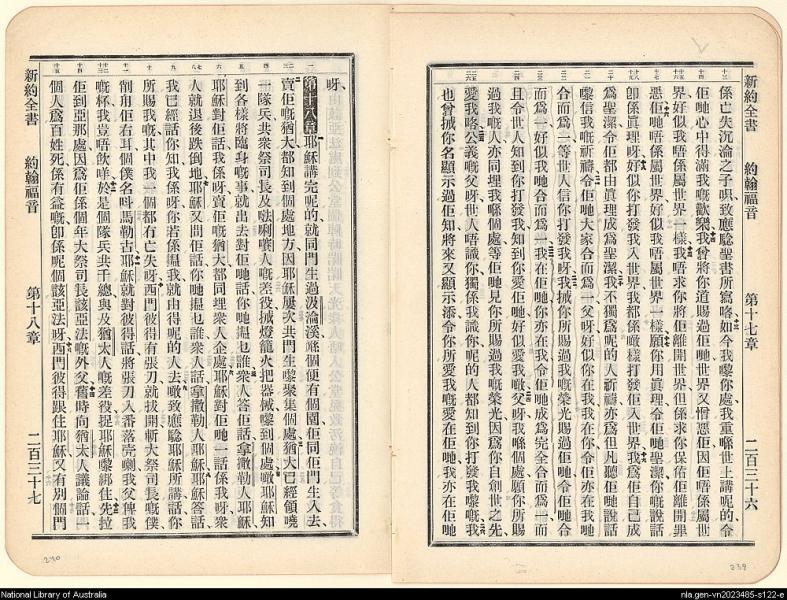 新約全書 約翰福音 第十七章 二百三十六
係亡失沉淪之子啫致應驗聖書所寫咯如今我嚟你處我重喺世上講呢的令
佢哋心中得滿我嘅歡樂我曾將你道賜過佢哋世界又憎惡佢因佢唔係屬世
界好似我唔係屬世界一樣我唔求你將佢離開世界但係求你保佑佢離開罪
惡佢哋唔係屬世界好似我唔屬世界一樣願你用眞理令佢哋聖潔你嘅說話
卽係眞理呀好似你打發我入世界我都係噉樣打發佢入世界我爲佢自己成
爲聖潔令佢都由眞理成爲聖潔我不獨爲呢的人祈禱亦爲但凡聽佢哋說話
嚟信我嘅祈禱令佢哋大家合而爲一父呀好似你在我我在你令佢亦在我哋
合而爲一等世人信你打發我呀我㧯你所賜過我嘅榮光賜過佢哋令佢哋合
而爲一好似我哋合而爲一我在佢哋你亦在我令佢哋成爲完全合而爲一而
且令世人知到你打發我知到你愛佢哋好似愛我噉父呀我喺個處願你所賜
過我嘅人亦同理我喺個處等佢哋見你所賜過我嘅榮光因爲你自創世之先
愛我咯公義嘅父呀世人唔識你獨係我識你呢的人都知到你打發我嚟嘅我
也曾㧯你名顯示過佢知將來又顯示添令你所愛我嘅愛在佢哋我亦在佢哋
239
呀
第十八章耶穌講完呢的就同門生過汲淪溪嗰個便有個園佢同佢門生入去
賣佢嘅猶大都知到個處地方因耶穌屢次共門生嚟聚集個處猶大已經領曉
一隊兵共衆祭司長及𠵽唎嘅人嘅差役㧯燈籠火把器械嚟到個處噉耶穌知
到各樣將臨身嘅事就出去對佢哋話你哋搵乜誰衆人答佢話拿撒勒人耶穌
耶穌對佢話我係呀賣佢嘅猶大都同埋衆人企處耶穌對佢哋一話係我呀衆
人就退後跌倒地耶穌又問佢話你哋搵乜誰衆人話拿撒勒人耶穌耶穌答話
我已經話你知我係呀你若係搵我就由得呢的人去噉致應驗耶穌所講話你
所賜我嘅其中我一個都冇亡失呀西門彼得有張刀就拔開斬大祭司長嘅僕
削甩佢右耳個僕名呌馬勒古耶穌就對彼得話將張刀入番落壳喇我父俾我
嘅杯我豈唔飲咩於是個隊兵共千總與及猶太人嘅差役捉耶穌嚟綁住先拉
佢到亞那處因爲佢係個年大祭司長該亞法嘅外父舊時向猶太人議論話一
個人爲百姓死係有益嘅卽係呢個該亞法呀西門彼得跟住耶穌又有別個門
新約全書 約翰福音 第十八章 二百三十七
240
National Library of Australia
nla.gen-vn2023485-s122-e